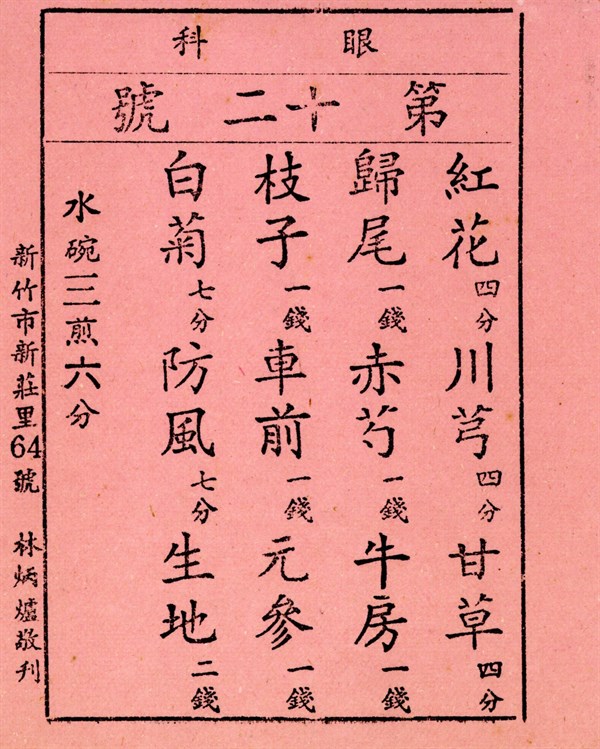 眼科
第十二號
紅花四分川芎四分甘草四分
歸尾一錢赤芍一錢牛房一錢
枝子一錢車前一錢元參一錢
白菊七分防風七分生地二錢
水碗三煎六分
新竹市新莊里64號 林炳爐敬刊